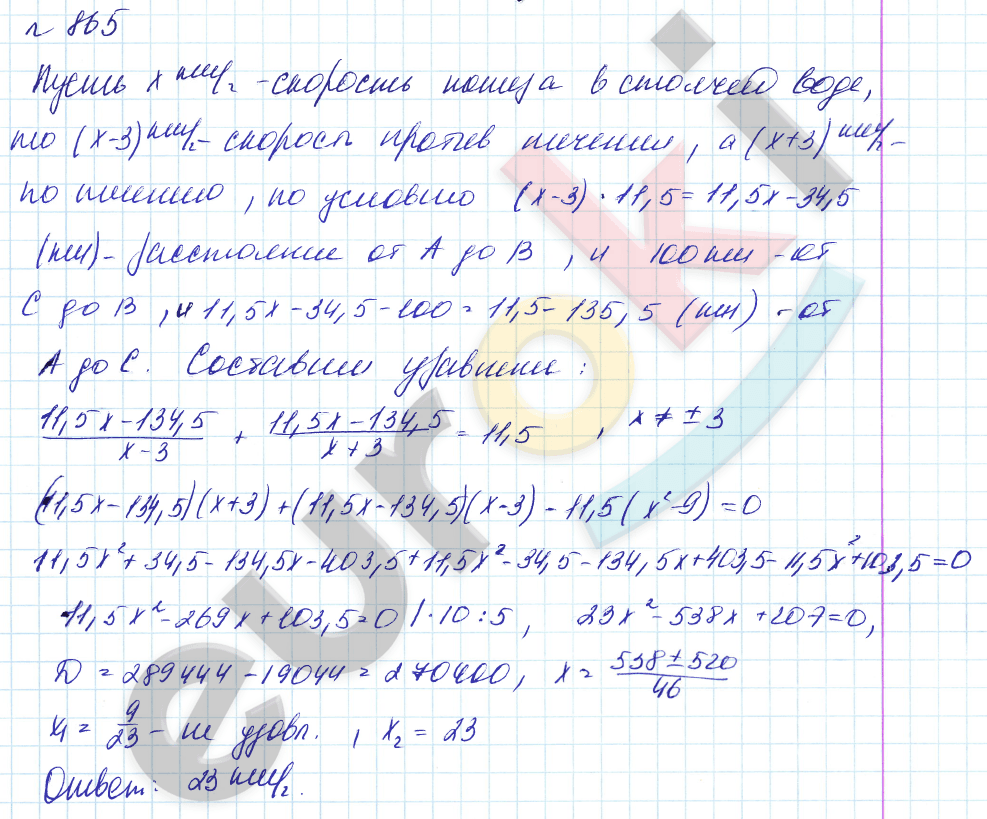 № 865
Пусть x км/ч - скорость катера в стоячей воде,
то (x-3) км/ч - скорость против течения, а (x+3) км/ч -
по течению, по условию (x-3) · 11,5 = 11,5x - 34,5
(км) - расстояние от A до B, и 100 км - от
C до B, и 11,5x - 34,5 - 100 = 11,5 - 135,5 (км) - от
A до C. Составим уравнение:
(11,5x - 134,5)/(x-3) + (11,5x - 134,5)/(x+3) = 11,5, x ≠ ± 3
(11,5x - 134,5)(x+3) + (11,5x - 134,5)(x-3) - 11,5(x² - 9) = 0
11,5x² + 34,5 - 134,5x - 403,5 + 11,5x² - 34,5 - 134,5x + 403,5 - 11,5x² + 103,5 = 0
11,5x² - 269x + 103,5 = 0 | · 10 : 5, 23x² - 538x + 207 = 0,
D = 289444 - 19044 = 270400, x = (538 ± 520)/46
x₁ = 9/23 - не удовл., x₂ = 23
Ответ: 23 км/ч.
euroki